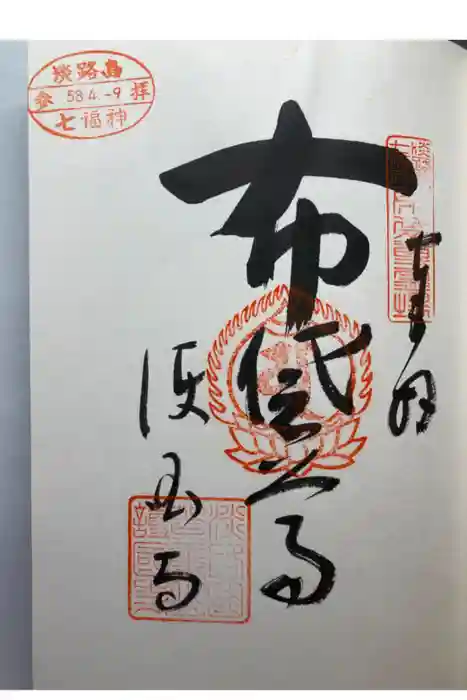 淡路島
参 58.4.-9 拝
七福神
奉拝
布袋尊
護国寺